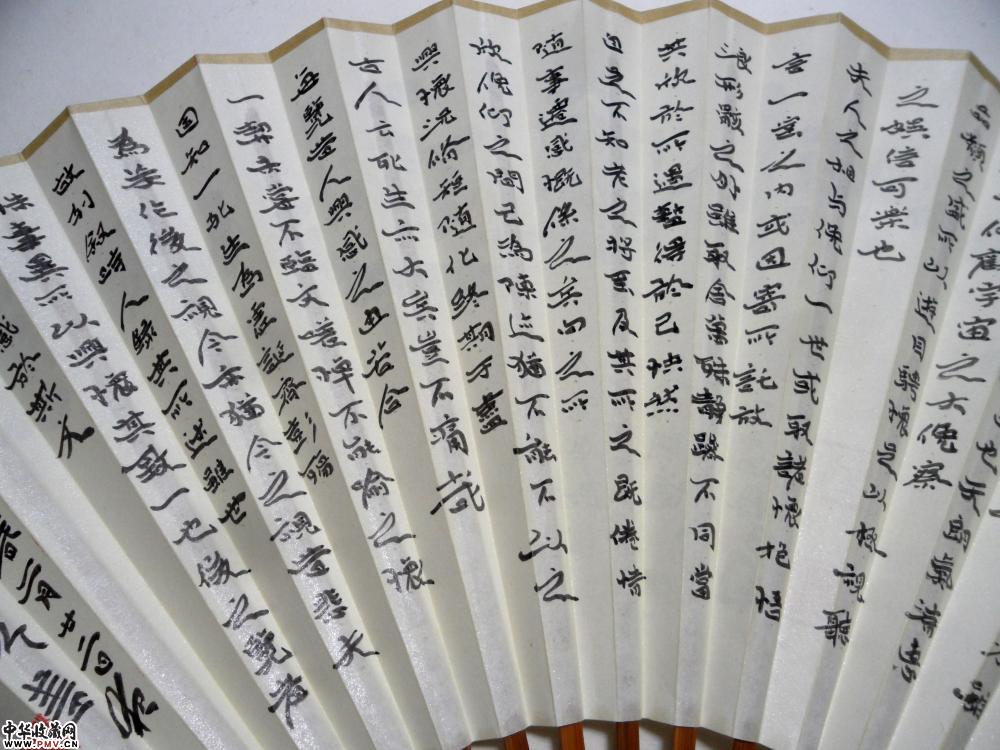 也天朗氣清惠
仰觀宇宙之大俯察
品類之盛所以遊目騁懷足以極視聽
之娛信可樂也
夫人之相与俯仰一世或取諸懷抱悟
言一室之内或因寄所託放
浪形骸之外雖取舍萬殊靜躁不同當
其欣於所遇暫得於己快然
自足不知老之将至及其所之既倦情
隨事遷感慨係之矣向之所
欣俛仰之間已為陳迹猶不能不以之
興懷況脩短隨化終期于盡
古人云死生亦大矣豈不痛哉
每覽昔人興感之由若合
一契未嘗不臨文嗟悼不能喻之懷
固知一死生為虛誕齊彭殤
為妄作後之視今亦猶今之視昔悲夫
故列叙時人録其所述雖世
殊事異所以興懷其致一也後之覽者
感於斯文
中华收藏网
www.PMV.CN